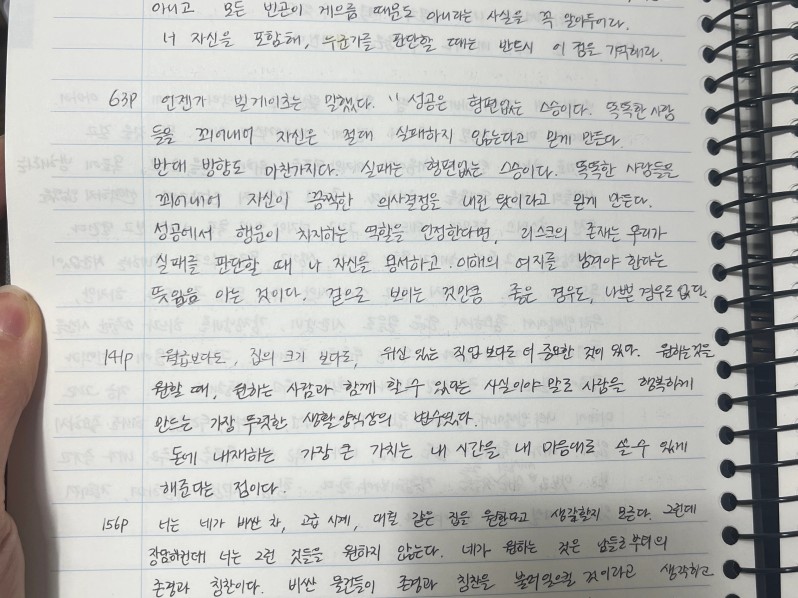 아니고 모든 빈곤이 게으름 때문도 아니라는 사실을 꼭 알아두어라.
너 자신을 포함해, 누군가를 판단할 때는 반드시 이 점을 기억해라.
63P 언젠가 빌게이츠는 말했다. "성공은 형편없는 스승이다. 똑똑한 사람
들을 꾀어내어 자신은 절대 실패하지 않는다고 믿게 만든다.
반대 방향도 마찬가지다. 실패는 형편없는 스승이다. 똑똑한 사람들을
꾀어내어 자신이 끔찍한 의사결정을 내린 탓이라고 믿게 만든다.
성공에서 행운이 차지하는 역할을 인정한다면, 리스크의 존재는 우리가
실패를 판단할 때 나 자신을 용서하고 이해의 여지를 남겨야 한다는
뜻임을 아는 것이다. 겉으로 보이는 것만큼 좋은 경우도, 나쁜 경우도 없다.
141P 월급보다도, 집의 크기 보다도, 위신 있는 직업보다도 더 중요한 것이 있다. 원하는 것을
원할 때, 원하는 사람과 함께 할 수 있다는 사실이야 말로 사람을 행복하게
만드는 가장 뚜렷한 생활양식상의 변수였다.
돈에 내재하는 가장 큰 가치는 내 시간을 내 마음대로 쓸 수 있게
해준다는 점이다.
156P 너는 네가 비싼 차, 고급 시계, 대궐 같은 집을 원한다고 생각할지 모른다. 그런데
장담하건대 너는 그런 것들을 원하지 않는다. 네가 원하는 것은 남들로부터의
존경과 칭찬이다. 비싼 물건들이 존경과 칭찬을 불러일으킬 것이라고 생각하고